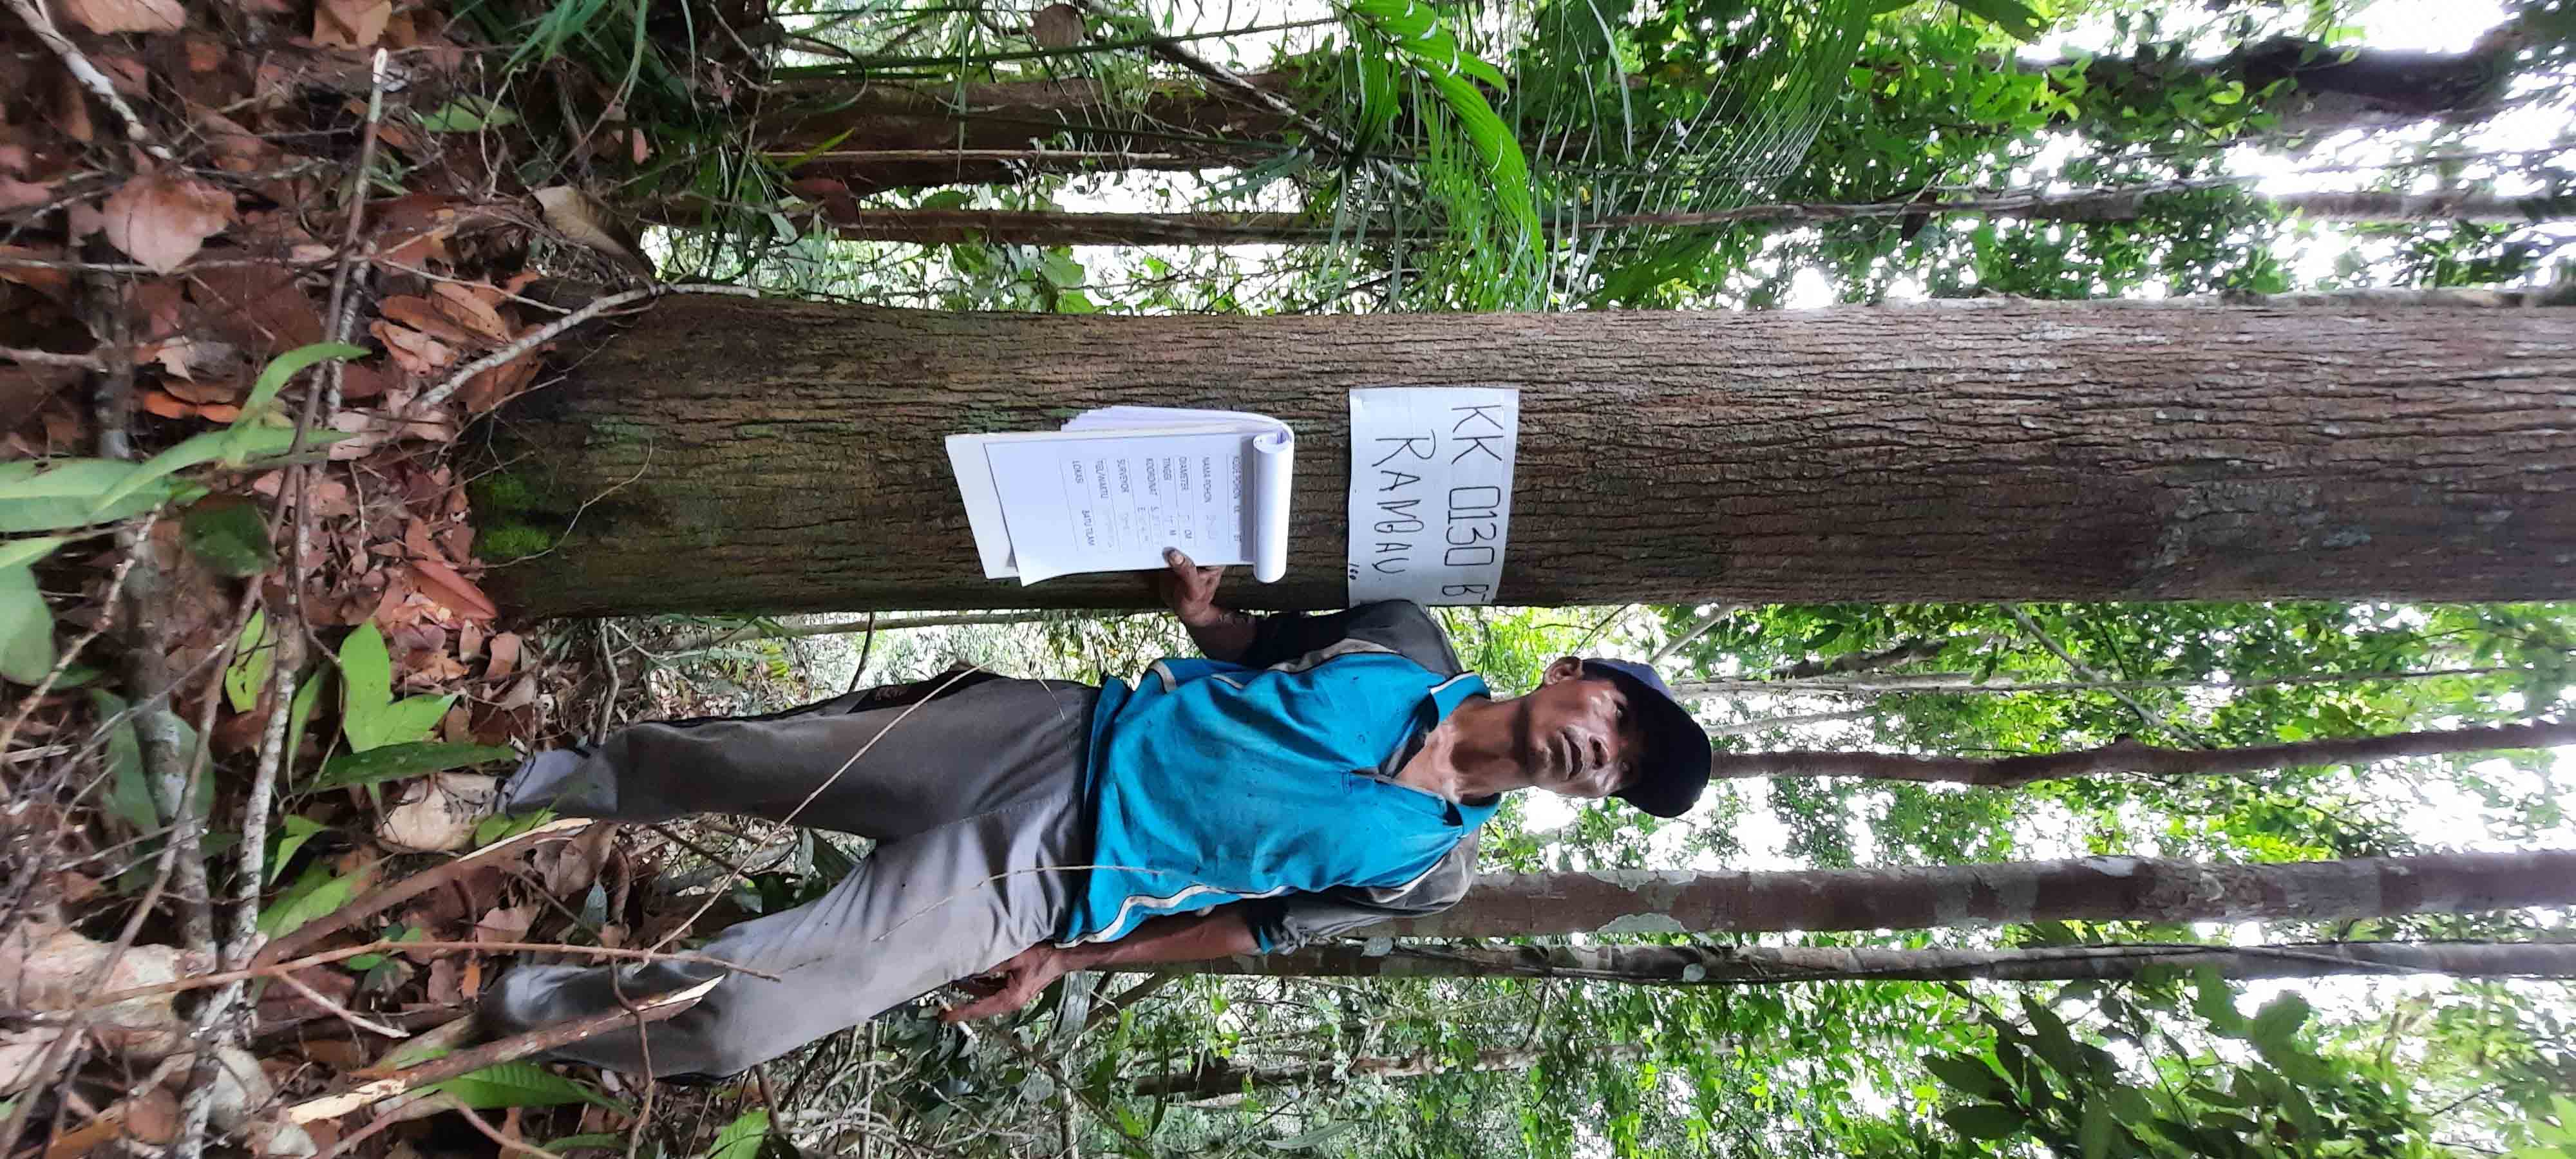 KK 0130 BT
RANGAU
160
KODE POHON KK BT
NAMA POHON
DIAMETER CM
TINGGI M
KOORDINAT S
E
SURVEYOR
TGL/WAKTU
LOKASI BATU TILAM